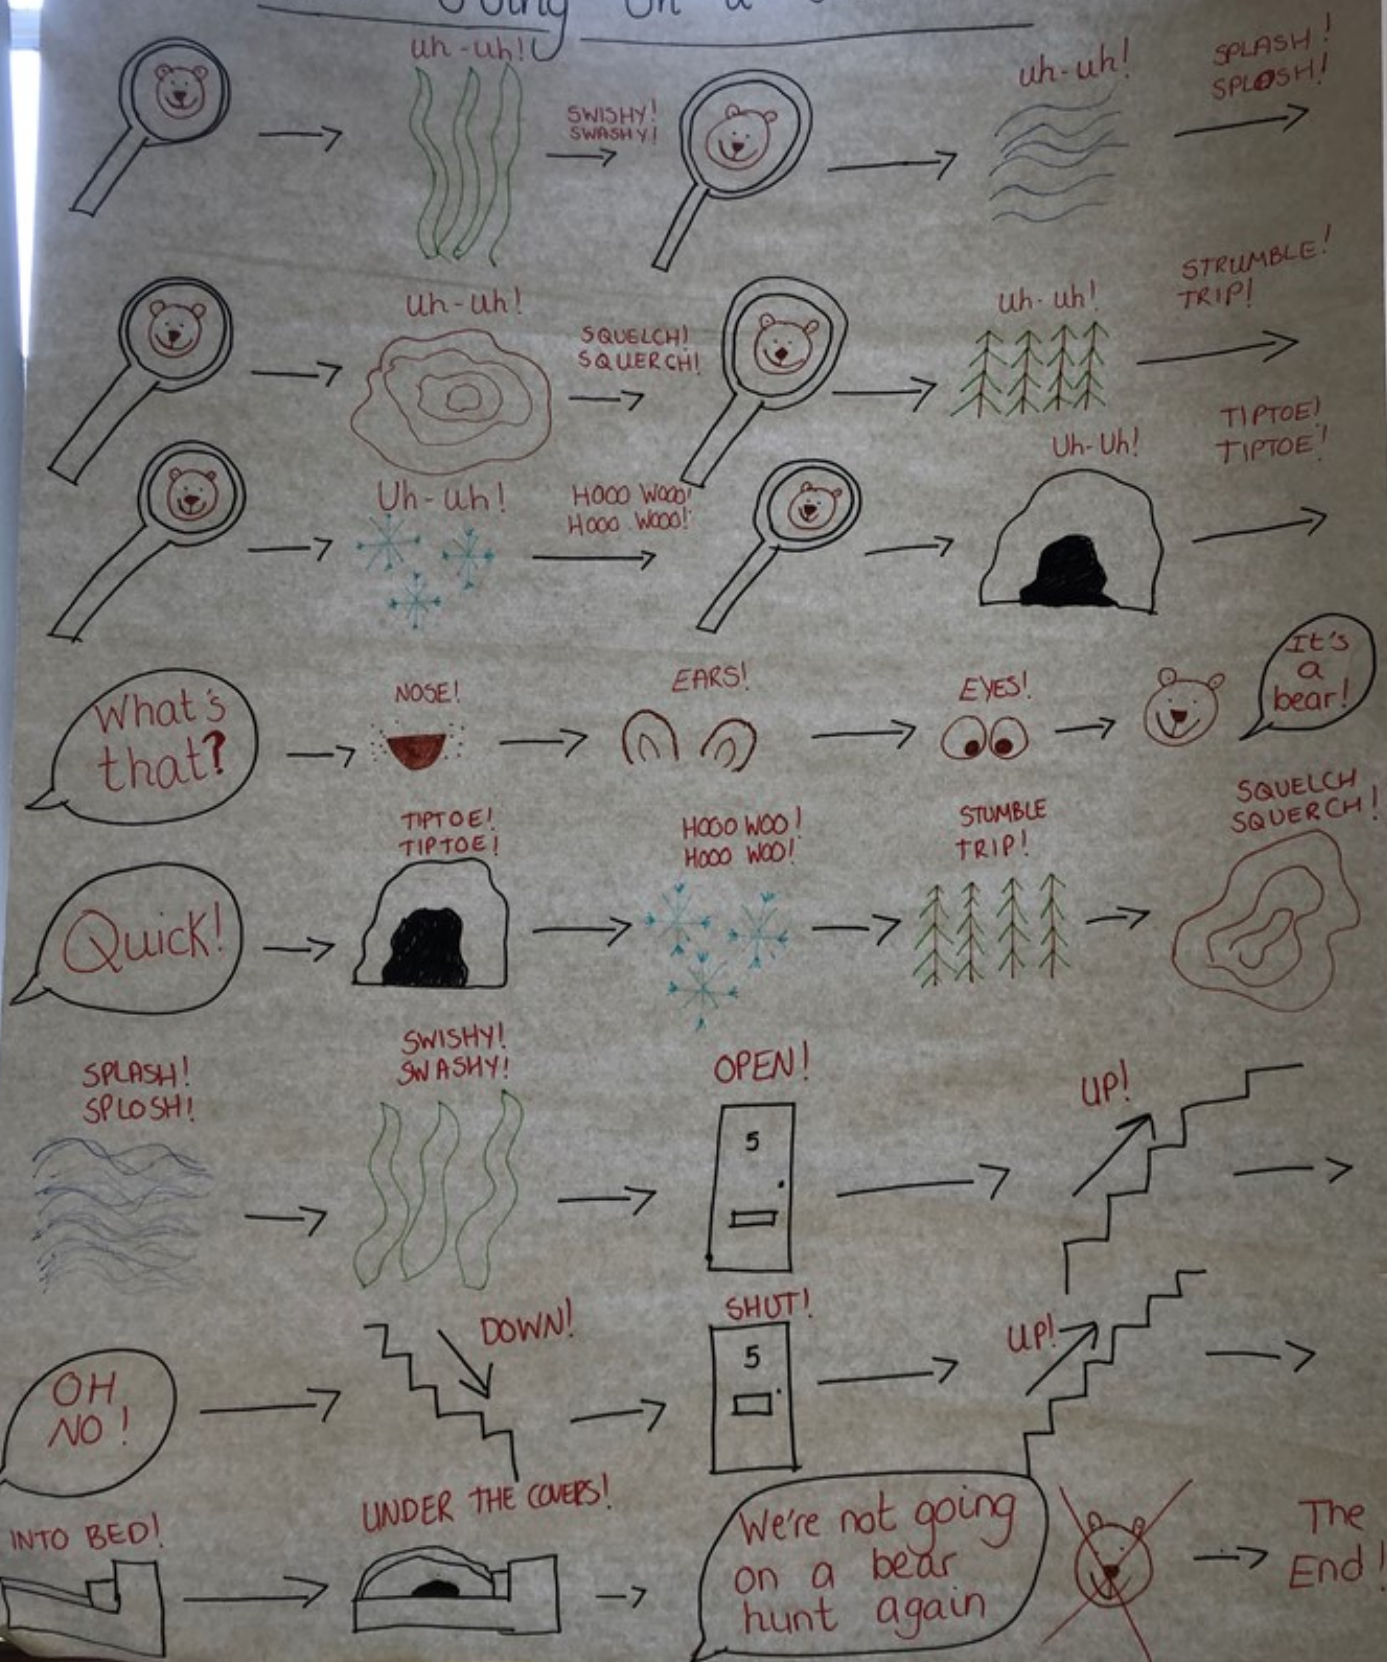 Going on a
uh-uh!
SWISHY!
SWASHY!
uh-uh!
SPLASH!
SPLOSH!
uh-uh!
SQUELCH!
SQUERCH!
uh-uh!
STRUMBLE!
TRIP!
Uh-uh!
HOOO WOOO!
HOOO WOOO!
Uh-Uh!
TIPTOE!
TIPTOE!
What's
that?
NOSE!
EARS!
EYES!
It's
a
bear!
Quick!
TIPTOE!
TIPTOE!
HOOO WOO!
HOOO WOO!
STUMBLE
TRIP!
SQUELCH
SQUERCH!
SPLASH!
SPLOSH!
SWISHY!
SWASHY!
OPEN!
5
UP!
OH
NO!
DOWN!
SHUT!
5
UP!
INTO BED!
UNDER THE COVERS!
We're not going
on a bear
hunt again
The
End!